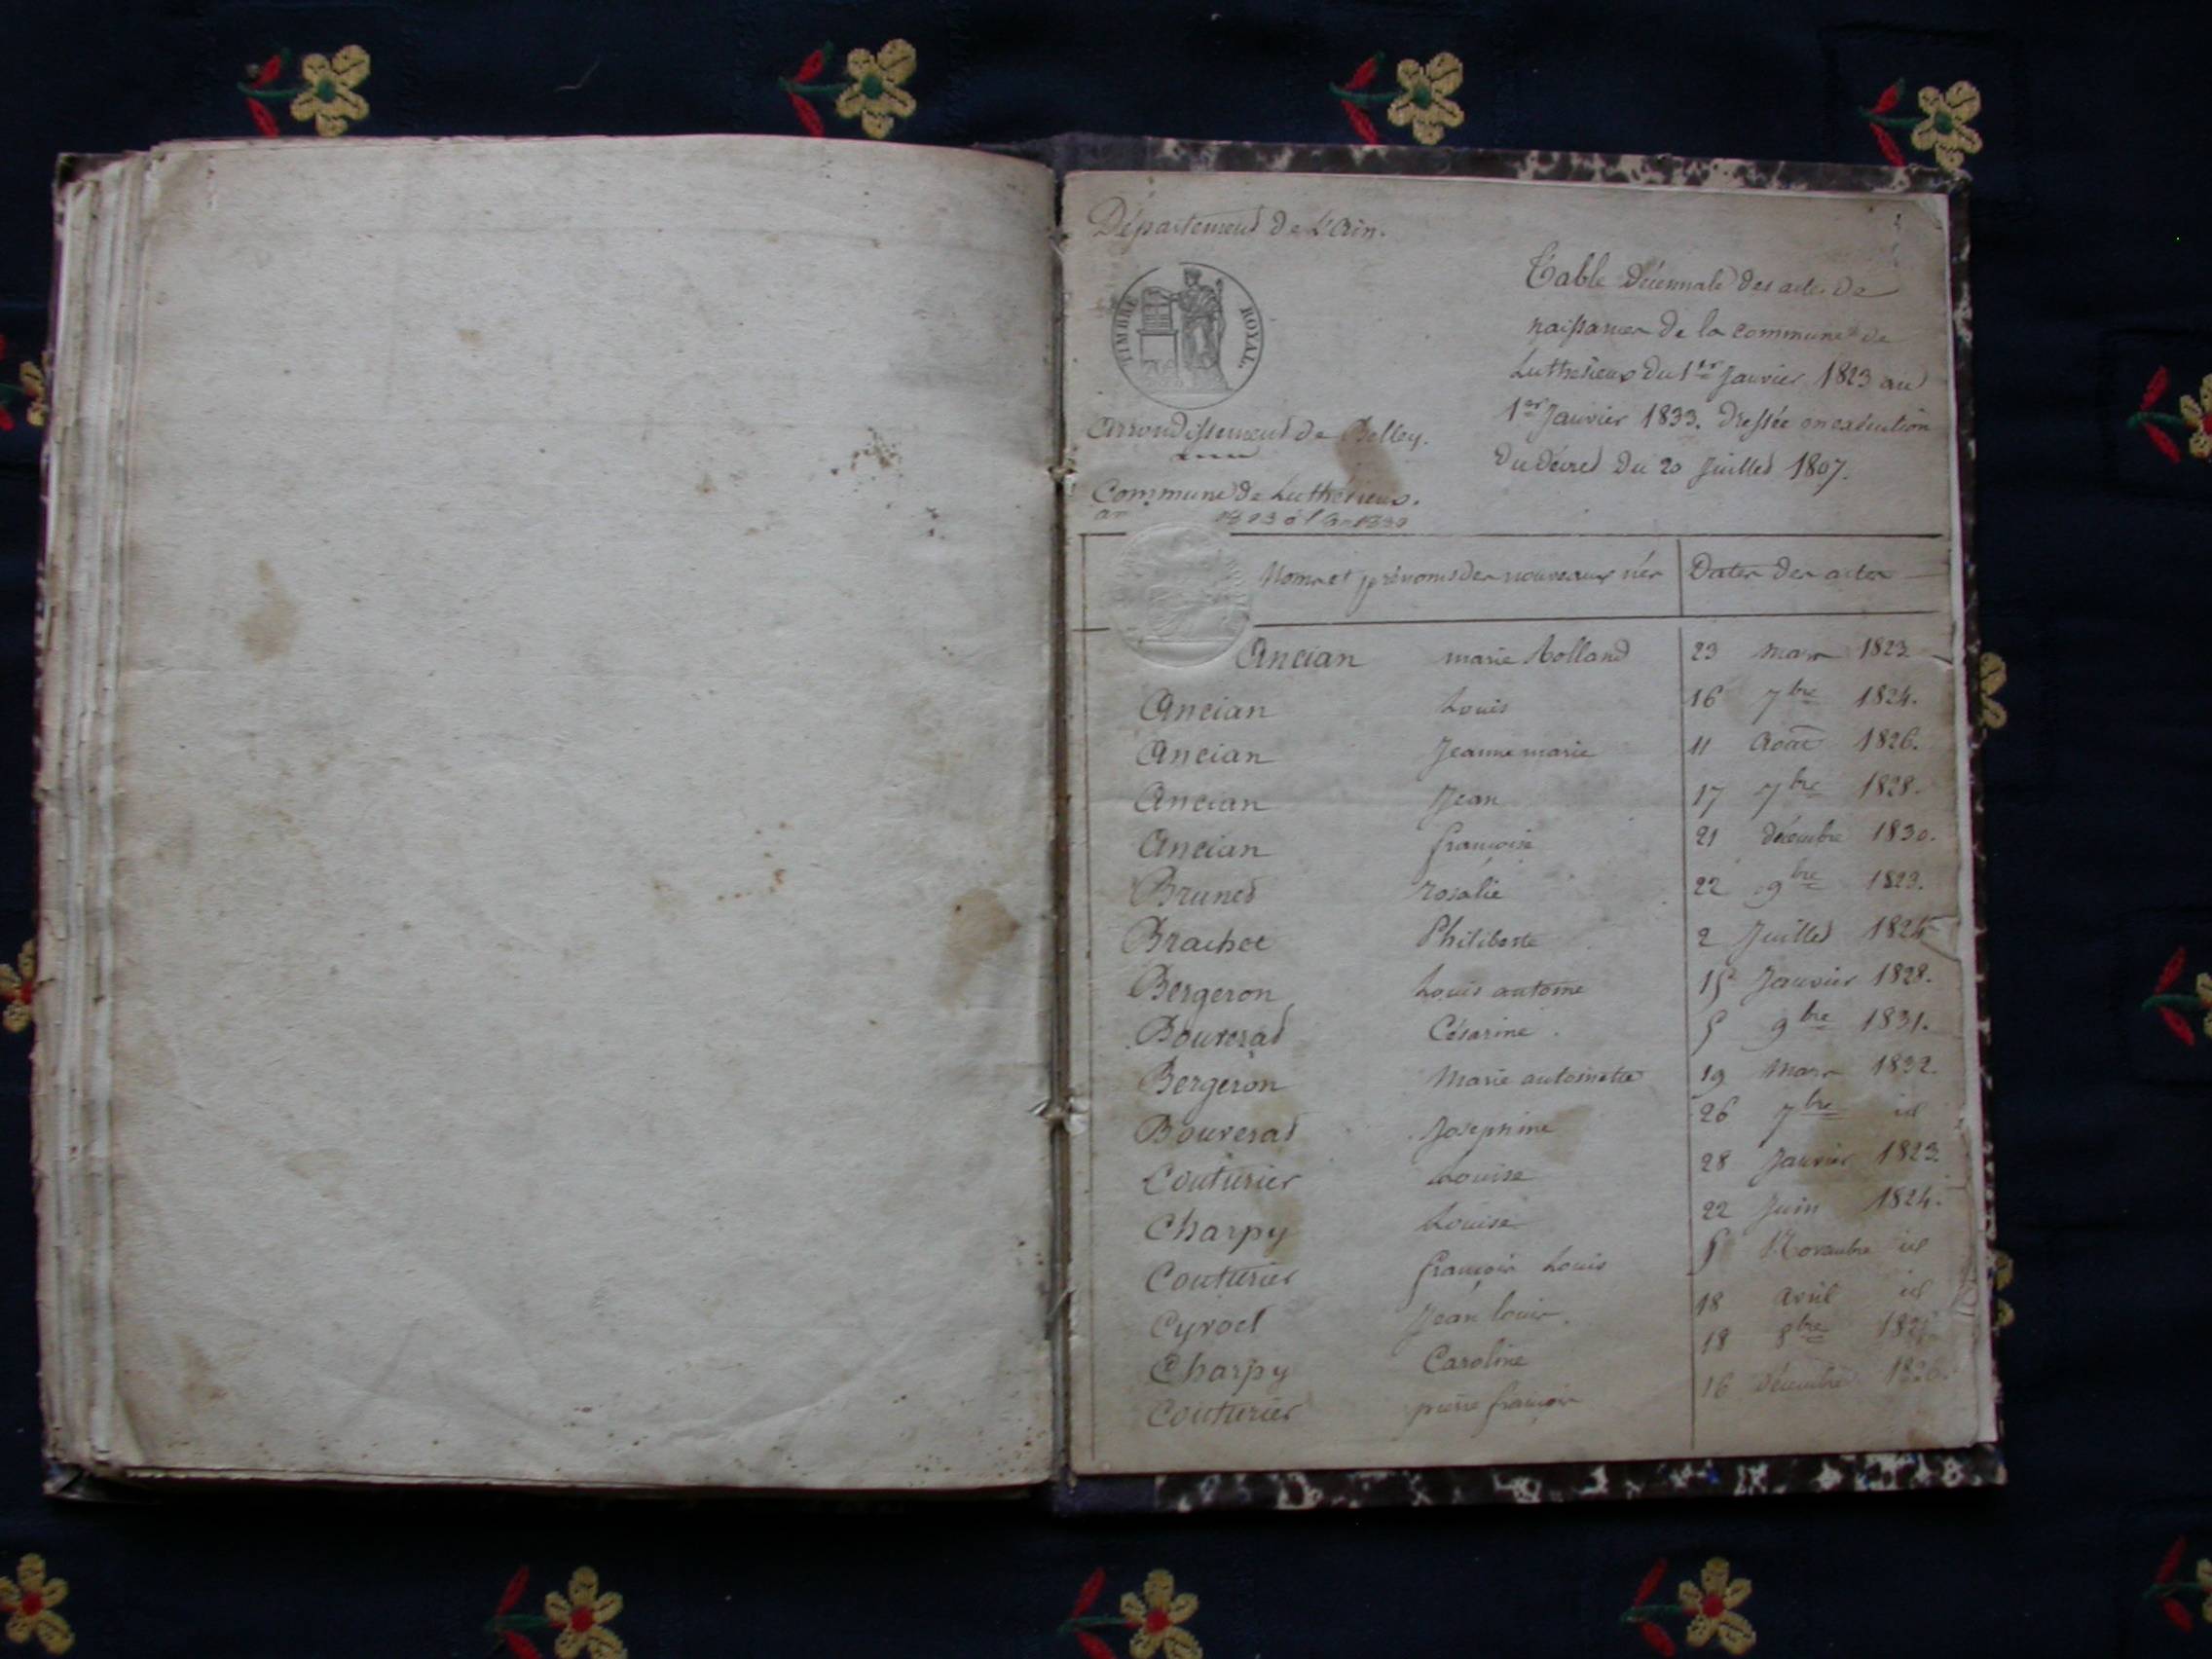 Département de L'Ain.
TIMBRE ROYAL.
Arrondissement de Belley.
Commune de Luthézieux.
an 1823 à l'an 1832
Table Décennale des actes de
naissances de la commune de
Luthézieux du 1er Janvier 1823 au
1er Janvier 1833. Dressée en exécution
du décret du 20 Juillet 1807.
Noms et prénoms des nouveaux nés Dates des actes
Ancian marie Rolland 23 mars 1823
Ancian Louis 16 7bre 1824.
Ancian Jeanne marie 11 Août 1826.
Ancian Jean 17 7bre 1828.
Ancian françoise 21 décembre 1830.
Brunet rosalie 22 9bre 1823.
Brachet Philiberte 2 Juillet 1825
Bergeron Louis antoine 15 Janvier 1828.
Bouverat Césarine 5 9bre 1831.
Bergeron Marie antoinette 19 Mars 1832.
Bouverat Josephine 26 7bre id
Couturier Louise 28 Janvier 1823
Charpy Louise 22 Juin 1824.
Couturier françois Louis 5 Novembre id
Cyvoct Jean louis. 18 avril id
Charpy Caroline 18 8bre
Couturier pierre françois 16 décembre 1826.